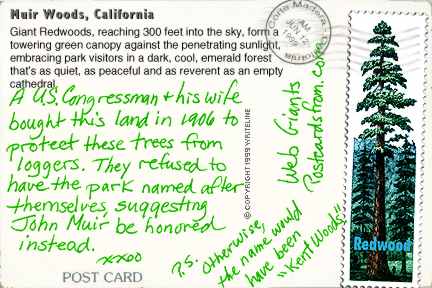 Muir Woods, California
Giant Redwoods, reaching 300 feet into the sky, form a
towering green canopy against the penetrating sunlight,
embracing park visitors in a dark, cool, emerald forest
that's as quiet, as peaceful and as reverent as an empty
cathedral.
A U.S. Congressman + his wife
bought this land in 1906 to
protect these trees from
loggers. They refused to
have the park named after
themselves, suggesting
John Muir be honored
instead.
xxoo
P.S. Otherwise,
the name would
have been
"Kent Woods".
POST CARD
© COPYRIGHT 1999 WRITELINE
Web Giants
Postcardsfrom.com
Corte Madera,
AM
JUN
Redwood